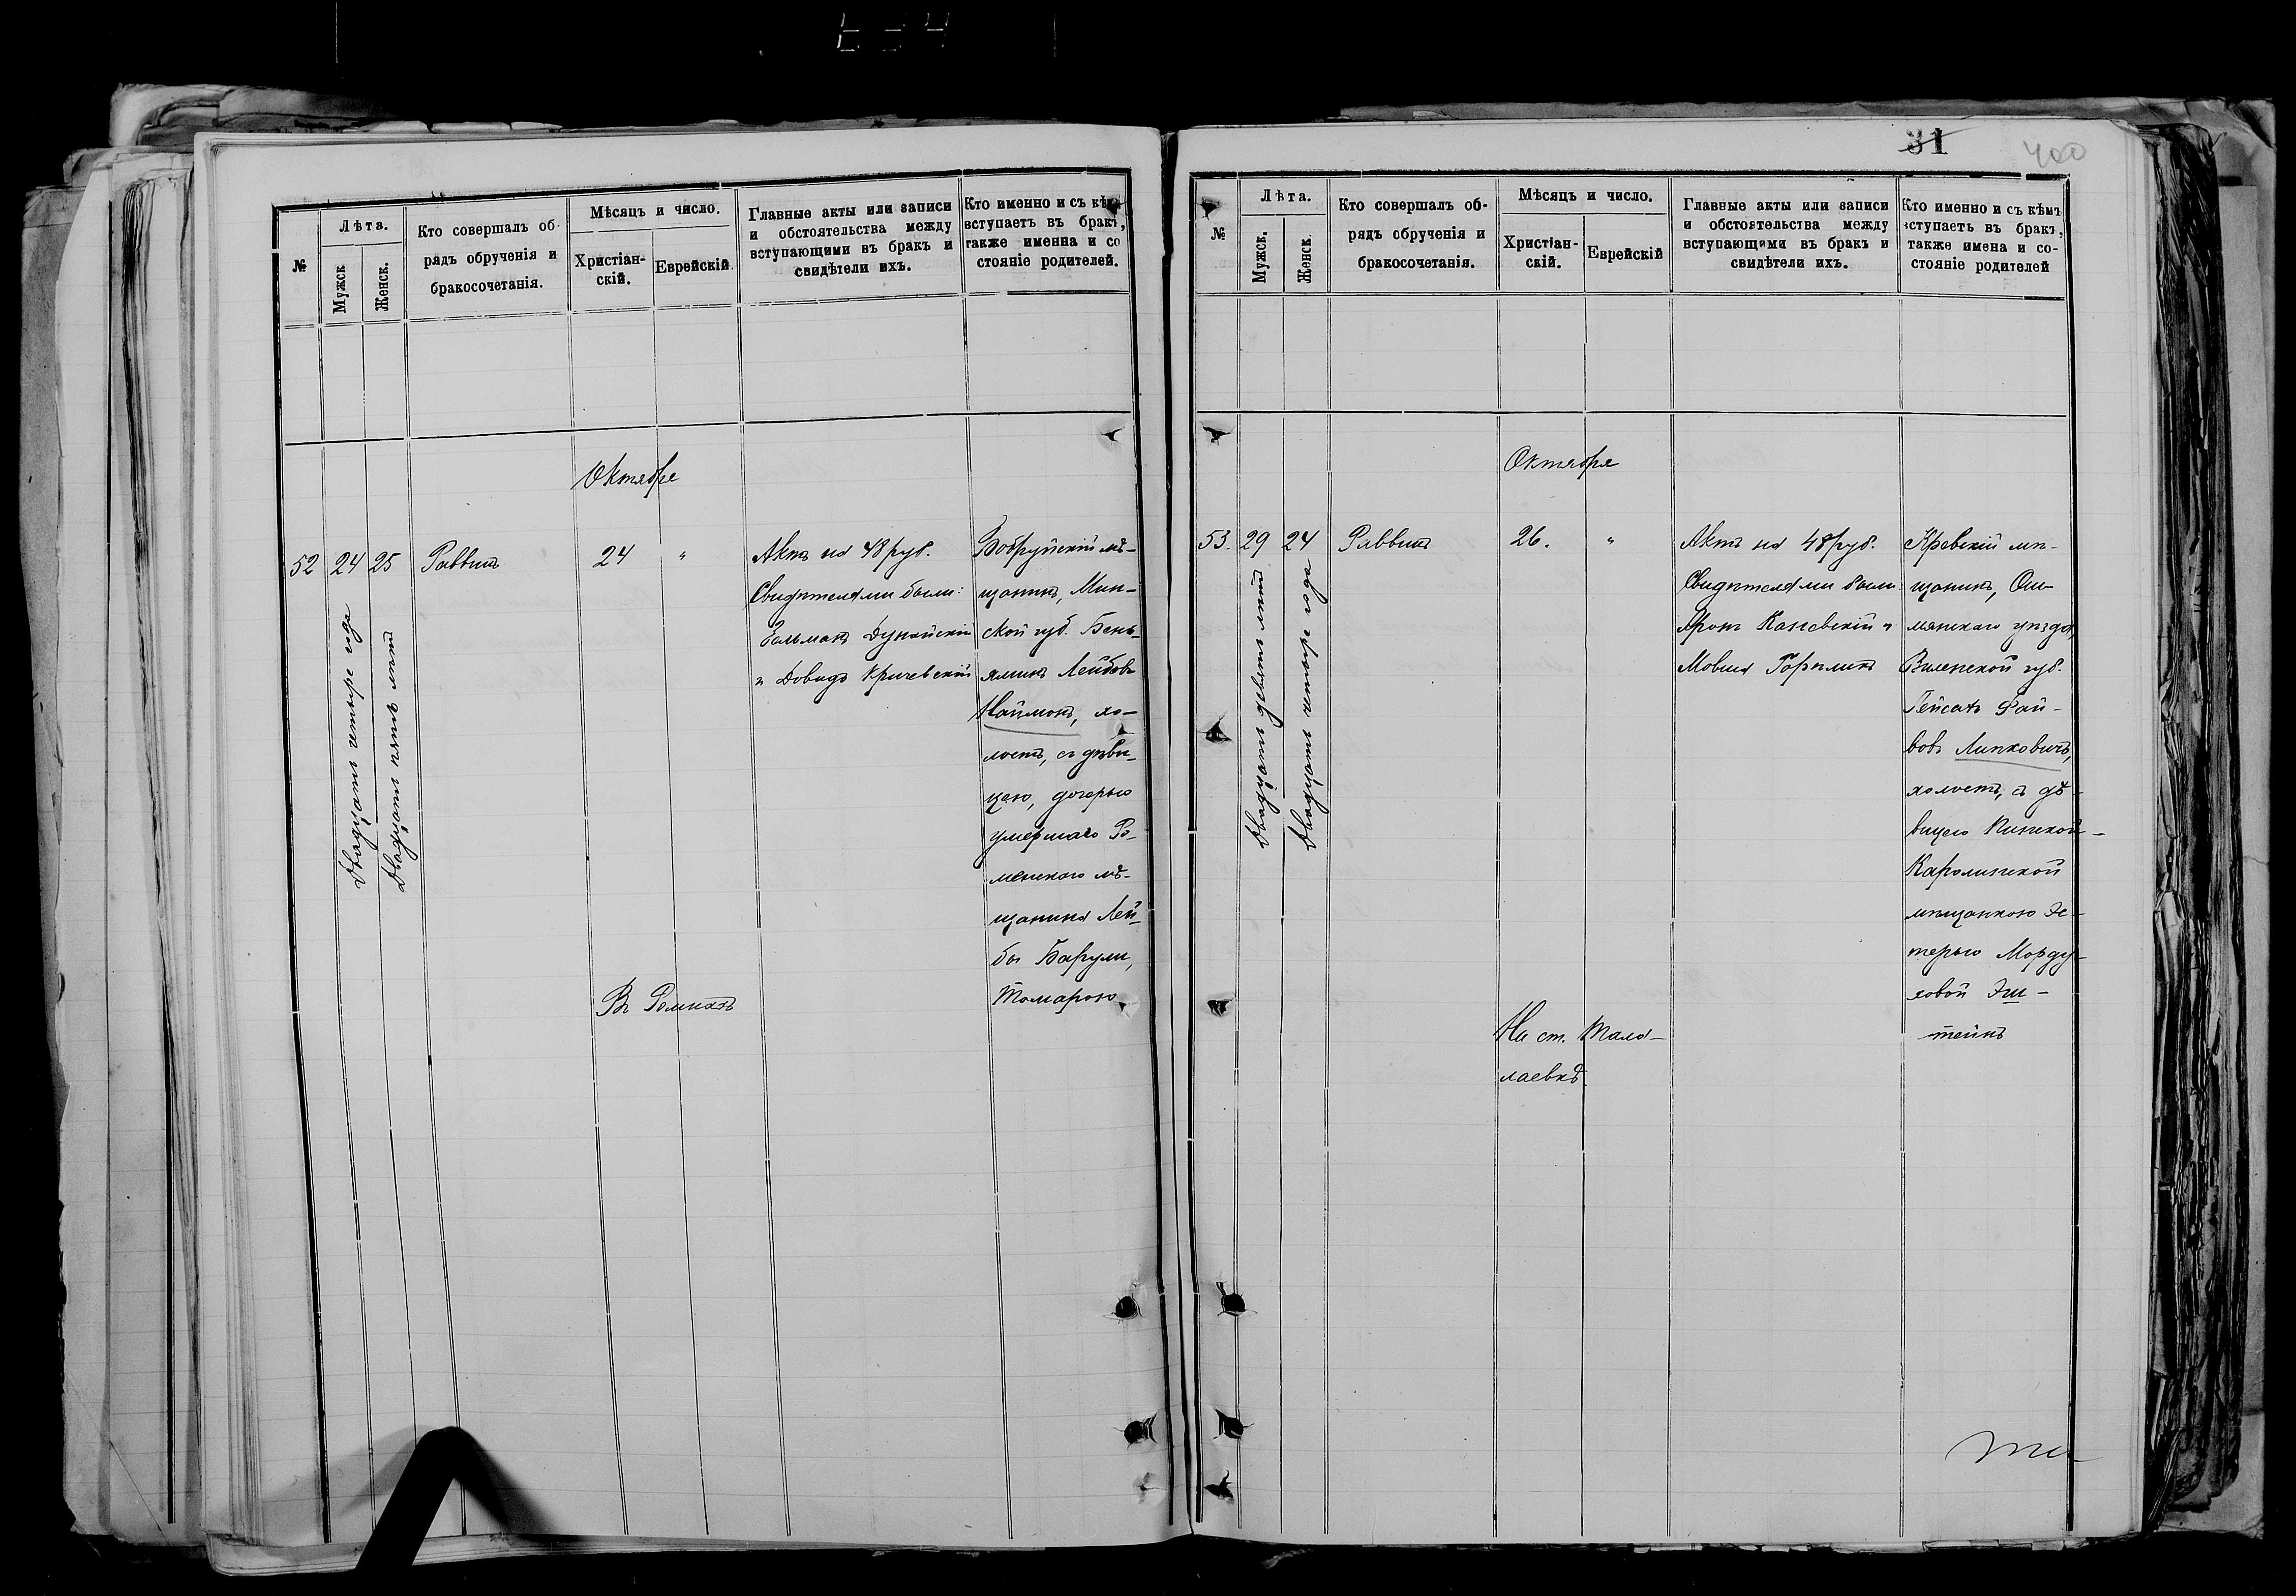 №
Лѣта.
Мужск
Женск.
Кто совершалъ об-
рядъ обрученія и
бракосочетанія.
Мѣсяцъ и число.
Христіан-
скій.
Еврейскій.
Главные акты или записи
и обстоятельства между
вступающими въ бракъ и
свидѣтели ихъ.
Кто именно и съ кѣмъ
вступаетъ въ бракъ,
также имена и со
стояніе родителей.
Октября
52
24
25
Двадцать четыре года
Двадцать пять лѣтъ
Раввинъ
24
"
Въ Ромнахъ
Актъ на 48 руб.
Свидѣтелями были:
Зальманъ Дунайскій
и Довидъ Кричевскій
Бобруйскій мѣ-
щанинъ, Мин-
ской губ. Бень-
яминъ Лейбовъ
Найманъ, хо-
лостъ, съ дѣви-
цею, дочерью
умершаго Ро-
менскаго мѣ-
щанина Лей-
бы Барули,
Томарою
31
400
№
Лѣта.
Мужск.
Женск.
Кто совершалъ об-
рядъ обрученія и
бракосочетанія.
Мѣсяцъ и число.
Христіан-
скій.
Еврейскій
Главные акты или записи
и обстоятельства между
вступающими въ бракъ и
свидѣтели ихъ.
Кто именно и съ кѣмъ
вступаетъ въ бракъ,
также имена и со-
стояніе родителей
Октября
53.
29
24
Двадцать девять лѣтъ
Двадцать четыре года
Раввинъ
26.
"
На ст. Тала-
лаевкѣ
Актъ на 48 руб.
Свидѣтелями были
Аронъ Каневскій и
Мовша Горѣликъ
Кревскій мѣ-
щанинъ, Ош-
мянскаго уѣзда,
Виленской губ.
Пейсахъ Фай-
вовъ Липковичъ,
холостъ, съ дѣ-
вицею Пинской-
Каролинской
мѣщанкою Эс-
терью Морду-
ховой Эп-
тейнъ